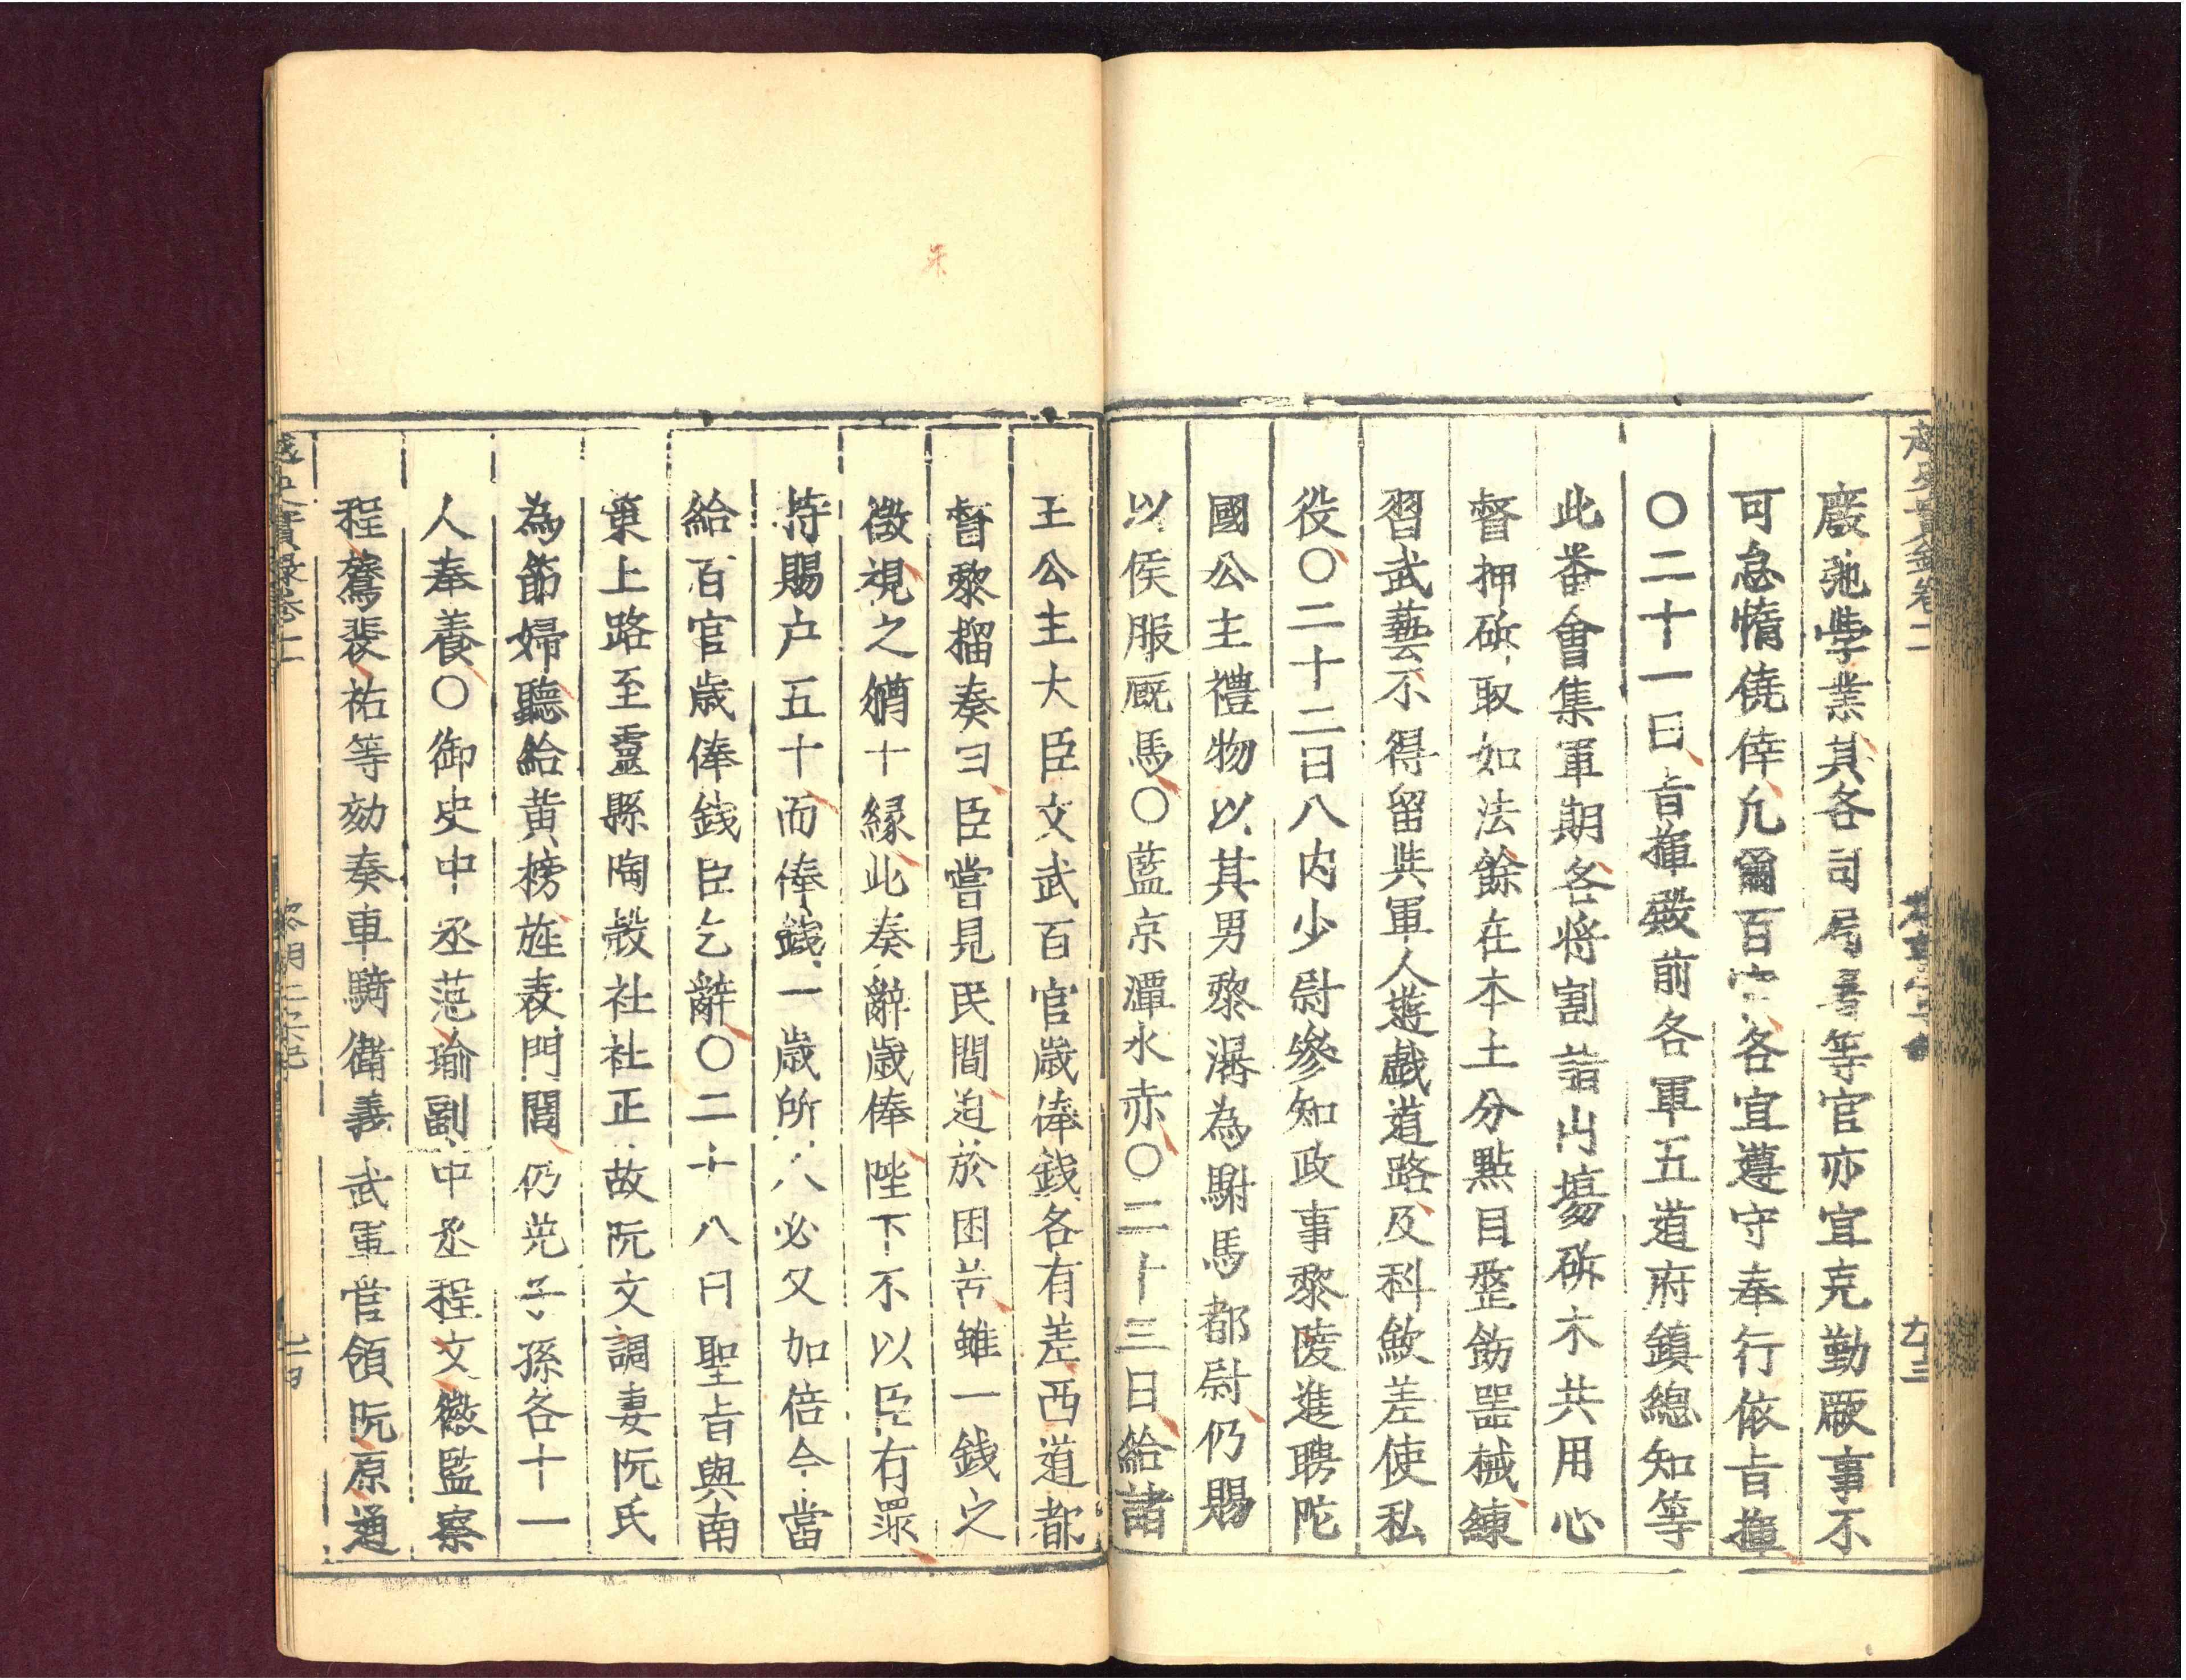 廢弛學業其各司局署等官亦宜克勤厥事不
可怠惰僥倖允爾百官各宜遵守奉行依旨揮
〇二十一日旨揮殿前各軍五道府鎮總知等
此番會集軍期各將割詣出塲斫木共用心
督押斫取如法餘在本土分點目整飭噐械練
習武藝不得留共軍人遊戲道路及科歛差使私
役〇二十二日入内少尉參知政事黎陵進聘陀
國公主禮物以其男黎潺為駙馬都尉仍賜
以侯服厩馬〇藍京潭水赤〇二十三日給諸
王公主大臣文武百官歲俸錢各有差西道都
督黎榴奏曰臣嘗見民間迫於困苦雖一錢之
徵視之猶十緣此奏辭歲俸陛下不以臣有罪
持賜户五十而俸錢一歲所入必又加倍今當
給百官歲俸錢臣乞辭〇二十八日聖旨與南
策上路至靈縣陶穀社社正故阮文調妻阮氏
為節婦聽給黄榜旌表門閭仍免子孫各十一
人奉養〇御史中丞范瑜副中丞程文徽監察
程鷟裴祐等劾奏車騎衛義武軍官領阮原通
越史實錄卷十一